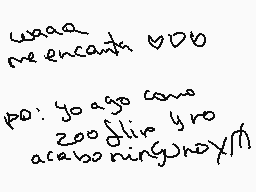 waaa
me encanta ♡♡♡
pd: yo ago como
200 flip y no
acabo ninguno